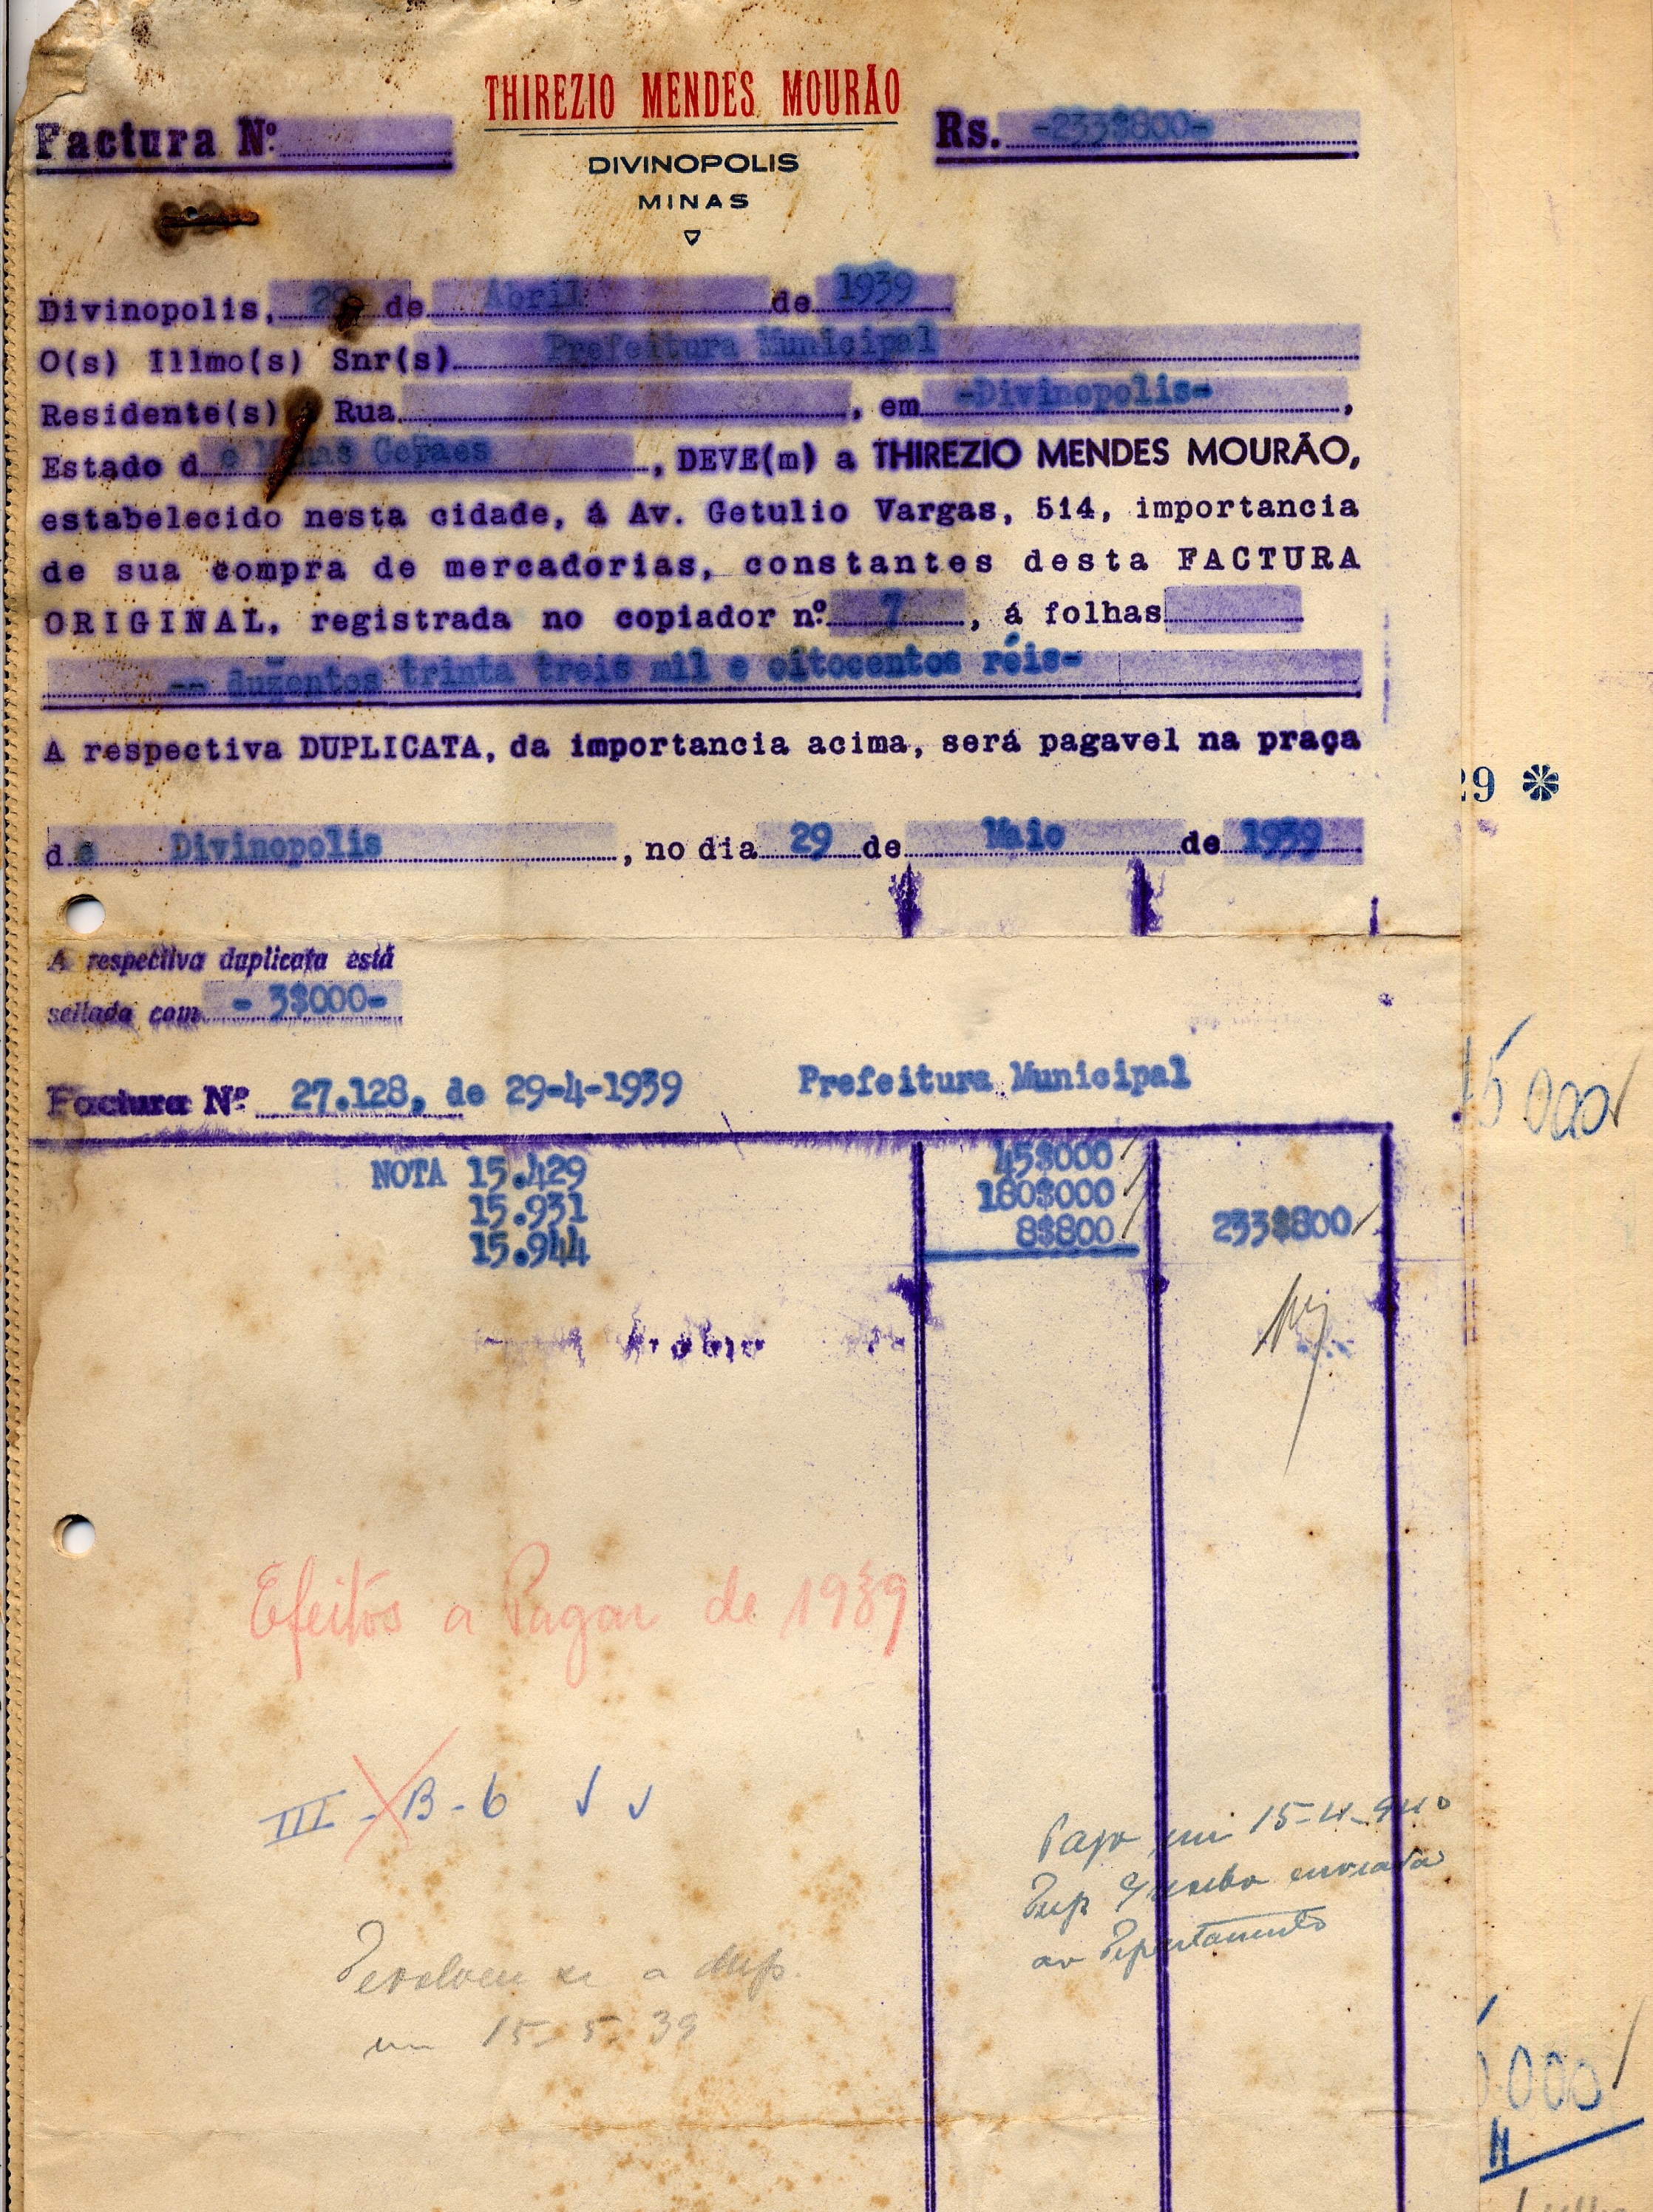 THIREZIO MENDES MOURÃO
Factura Nº
Rs. -233$800-
DIVINOPOLIS
MINAS
Divinopolis, 29 de Abril de 1939
O(s) Illmo(s) Snr(s) Prefeitura Municipal
Residente(s) á Rua , em -Divinopolis-,
Estado de Minas Geraes, DEVE(m) a THIREZIO MENDES MOURÃO,
estabelecido nesta cidade, á Av. Getulio Vargas, 514, importancia
de sua compra de mercadorias, constantes desta FACTURA
ORIGINAL, registrada no copiador nº 7, á folhas
-- duzentos trinta treis mil e oitocentos réis-
A respectiva DUPLICATA, da importancia acima, será pagavel na praça
de Divinopolis, no dia 29 de Maio de 1939
A respectiva duplicata está
sellada com - 3$000-
Factura Nº 27.128, de 29-4-1939 Prefeitura Municipal
NOTA 15.429 45$000
15.931 180$000
15.944 8$800 233$800
Efeitos a Pagar de 1939
III - B - 6
Pago em 15-4-940
Dup. recibo enviada
ao Departamento
Devolveu se a dup.
em 15-5-39
29
000
000